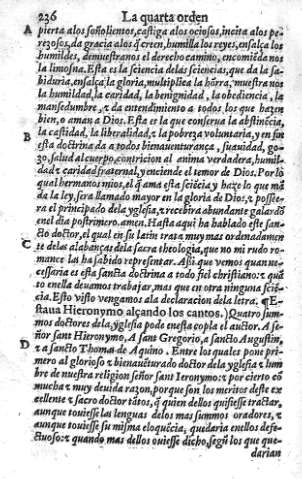 236 La quarta orden
A pierta alos soñoliemos, castiga alos ociosos, incita alos pe-
rezosos, da gracia alos q̃ creen, humilla los reyes, ensalça los
humildes, demuestranos el derecho camino, encomiẽda nos
la limosna. Esta es la sciencia delas sciencias, que da la sa-
biduria, ensalça la gloria, multiplica la hõrra, muestra nos
la humildad, la caridad, la benignidad, la obediencia, la
mansedumbre, ⁊ da entendimiento a todos los que hazen
bien, o aman a Dios. Esta es la que conserua la abstinẽcia,
la castidad, la liberalidad, ⁊ la pobreza voluntaria, y en fin
B esta doctrina da a todos bienauenturança, suauidad, go-
zo, salud al cuerpo, contricion al anima verdadera, humil-
dad ⁊ caridad fraternal, y enciende el temor de Dios. Por lo
qual hermanos mios, el q̃ ama esta sciẽcia y haze lo que mã
da la ley, sera llamado mayor en la gloria de Dios, ⁊ posse-
era el principado dela yglesia, ⁊ recibira abundante galardõ
enel dia postrimero. amen. Hasta aqui ha hablado este san-
cto doctor, el qual en su latin trata muy mas ordenadamen
C te delas alabanças dela sacra theologia, que no mi rudo ro-
mance las ha sabido representar. Assi que vemos quan ne-
cessaria es esta sancta doctrina a todo fiel christiano: ⁊ quã
to enella deuamos trabajar, mas que en otra ninguna sciẽ-
cia. Esto visto vengamos ala declaracion dela letra. ¶ Es
taua Hieronymo alçando los cantos.) Quatro sum-
mos doctores dela yglesia pode enesta copla el auctor. A se-
ñor sant Hieronymo, A sant Gregorio, a sancto Augustin,
D ⁊ a sancto Thomas de Aquino. Entre los quales pone pri-
mero al glorioso ⁊ bienauẽturado doctor dela yglesia ⁊ lum
bre de nuestra religion señor sant Ieronymo: ⁊ por cierto cõ
mucha ⁊ muy deuida razon, porque son los meritos deste ex
cellente ⁊ sacro doctor tãtos, q̃ quien dellos quisiesse tractar,
aunque touiesse las lenguas delos mas summos oradores, ⁊
aunque touiesse su misma eloquẽcia, quedaria enellos defe-
ctuoso: ⁊ quando mas dellos ouiesse dicho, segũ los que que-
darian